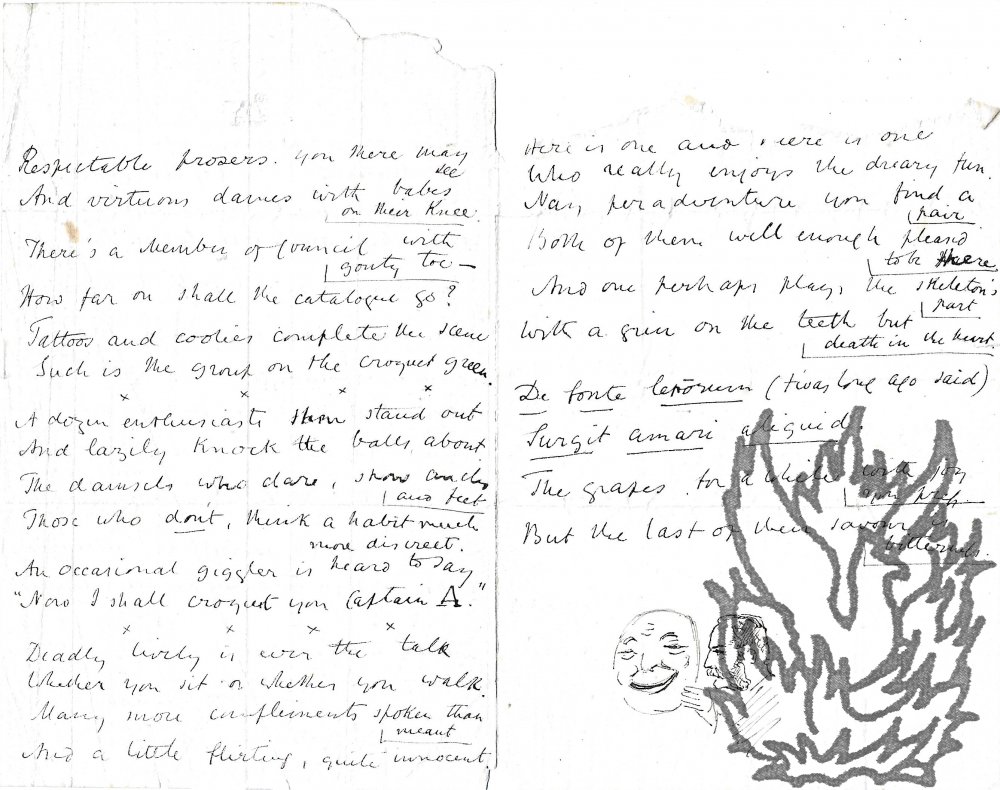 Respectable prosers you there may
see
And virtuous dames with babes
on their Knee.
There's a Member of Council with
gouty toe —
How far on shall the catalogue go?
Tattoos and coolies complete the scene
Such is the group on the croquet green.
x x x x
A dozen enthusiasts stand out
And lazily Knock the balls about.
The damsels who dare, show ancles
and feet
Those who don't, think a habit much
more discreet.
An occasional giggler is heard to say
"Now I shall croquet you Captain A."
x x x x
Deadly lively is ever the talk
Whether you sit or whether you walk.
Many more compliments spoken than
meant
And a little flirting, quite innocent.
Here is one and there is one
Who really enjoys the dreary fun.
Nay, peradventure you find a
pair
Both of them well enough pleased
to be there
And one perhaps plays the skeleton's
part
With a grin on the teeth but
death in the heart.
De fonte leporum (twas long ago said)
Surgit amari aliquid.
The grapes for a while with joy
But the last of their savour is
bitterness.